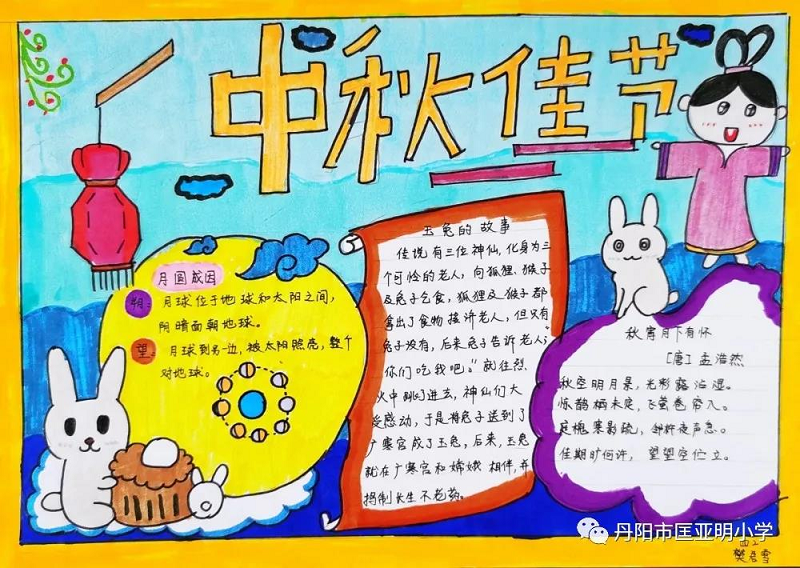 中秋佳节
月圆成因
朔 月球位于地球和太阳之间,
阴暗面朝地球。
望: 月球到另一边,被太阳照亮,整个
对地球。
玉兔的故事
传说有三位神仙,化身为三
个可怜的老人,向狐狸,猴子
及兔子乞食,狐狸及猴子都
拿出了食物接济老人,但只有
兔子没有,后来兔子告诉老人:“
你们吃我吧。”就往烈
火中跳了进去,神仙们大
受感动,于是将兔子送到了
广寒宫成了玉兔,后来,玉兔
就在广寒宫和嫦娥相伴,并
捣制长生不老药。
秋宵月下有怀
[唐] 孟浩然
秋空明月悬,光彩露沾湿。
惊鹊栖未定,飞萤卷帘入。
庭槐寒影疏,邻杵夜声急。
佳期旷何许,望望空伫立。
丹阳市匡亚明小学
四2
樊君雪